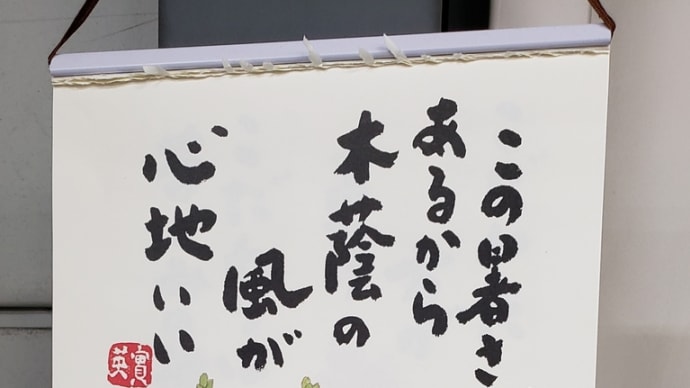 この暑さ
あるから
木蔭の
風が
心地いい
寳英